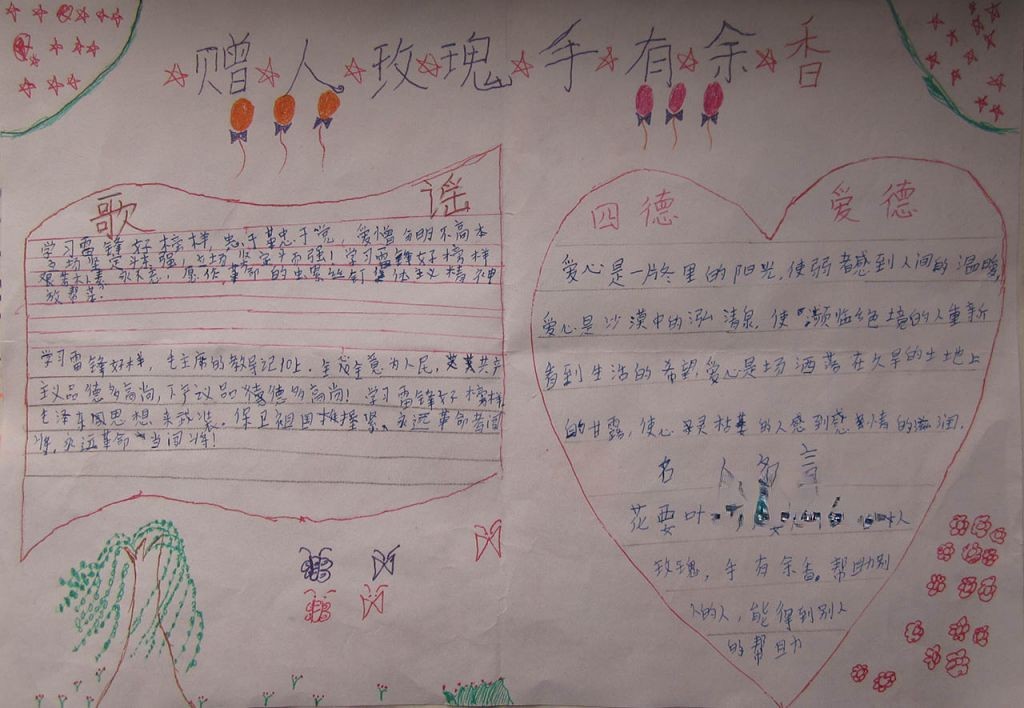 赠人玫瑰手有余香
歌谣
学习雷锋好榜样,忠于革忠于党,爱憎分明不高本
坚定斗志强!学习雷锋好榜样
艰苦朴素永不忘,愿作革命的
放帮芒
学习雷锋好样,毛主席的教导记10上,全心全意为人民,共产
主义品德多高尚,下产议品德德多高尚!学习雷锋好榜样
毛泽东思想来武装。保卫祖国握紧。永远革命者闯
将,永远革命当闯将!
四德 爱德
爱心是一片冬里的阳光,使弱者感到人间的温暖,
爱心是沙漠中的泓清泉,使濒临绝境的人重新
看到生活的希望,爱心是场洒落在久旱的土地上
的甘露,使心灵枯萎的人感到感情的滋润.
名人名言
花要叶 人
玫瑰,手有余香。帮助别
人的人,能得到别人
的帮助